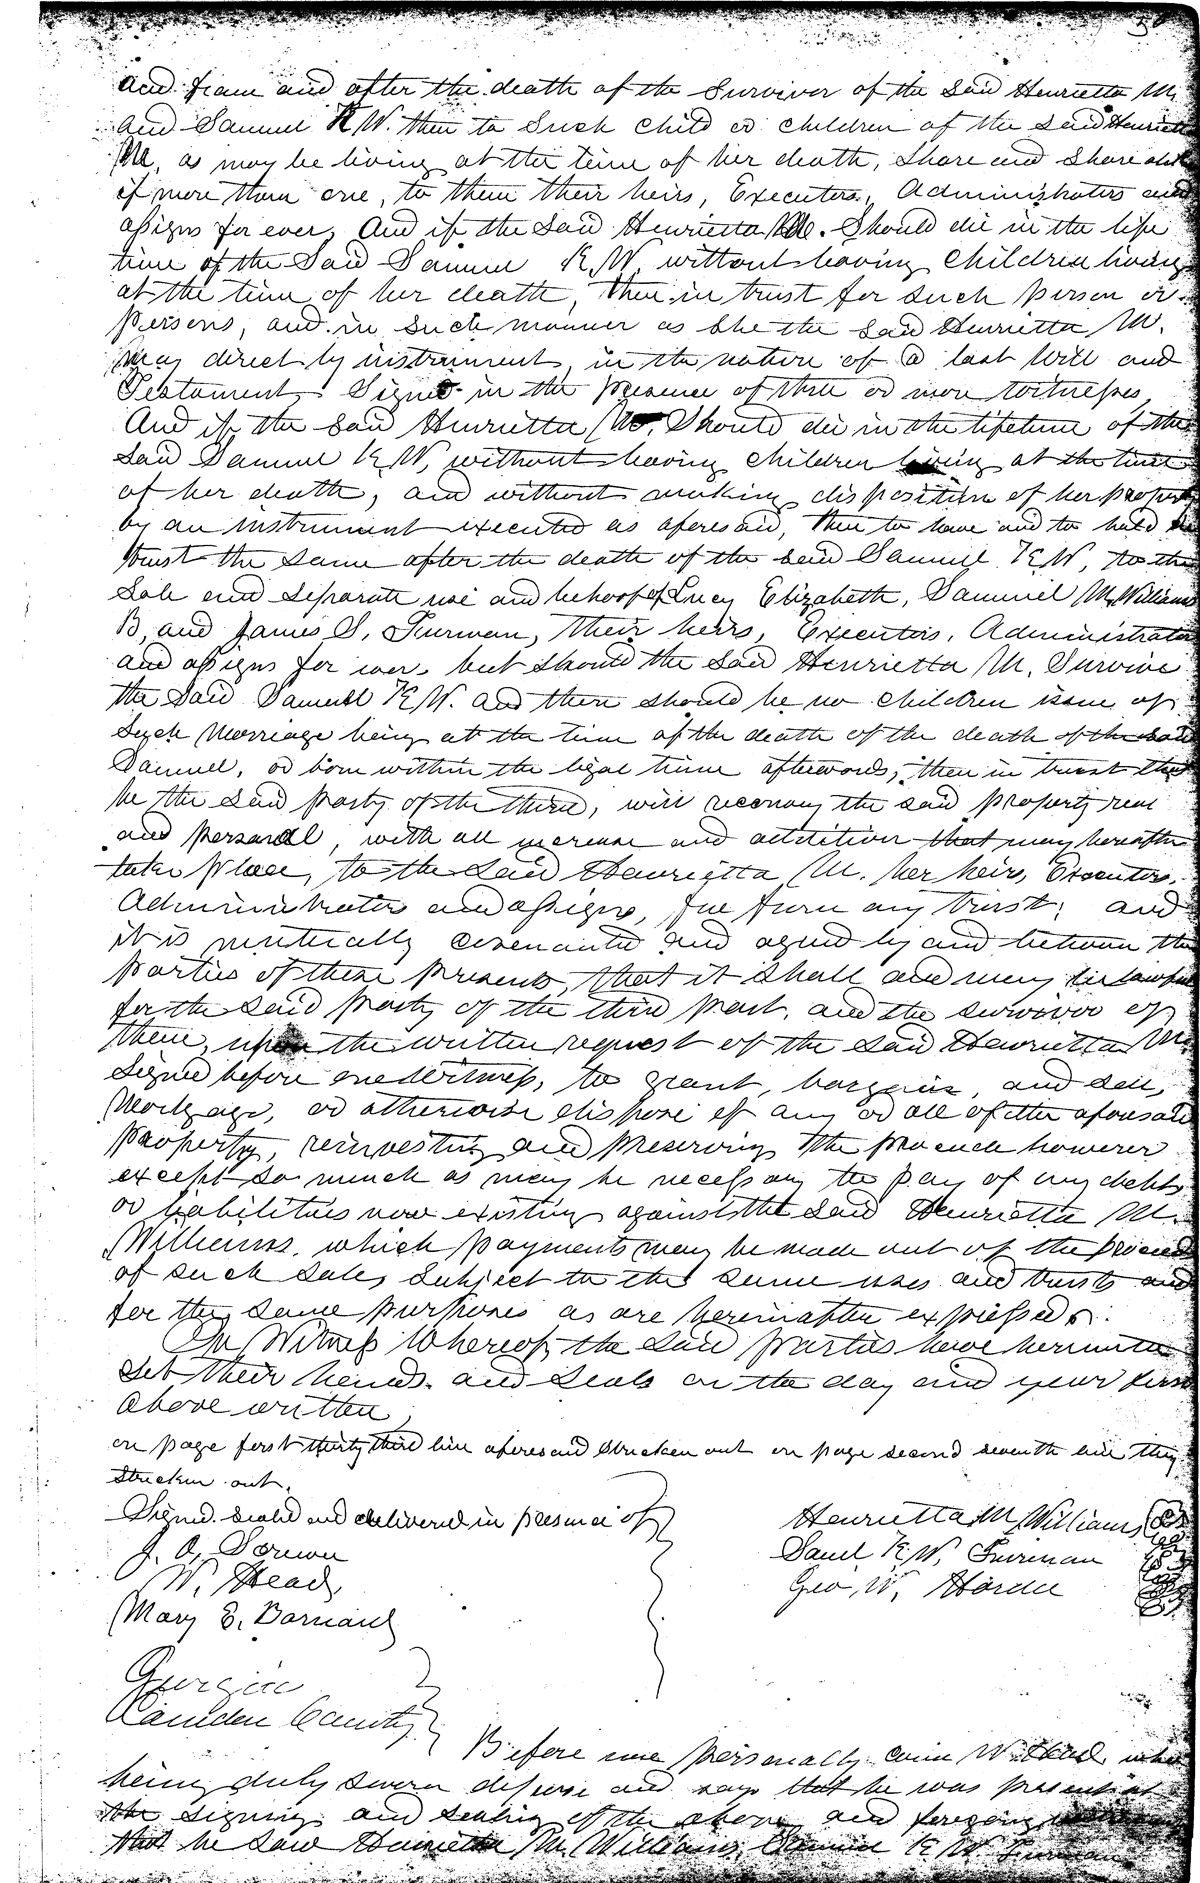 and from and after the death of the Survivor of the Said Henrietta M,
and Samuel K W. then to Such Child or children of the said Henrietta
M, as may be living at the time of her death, Share and Share alike
if more than one, to them their heirs, Executors, Administrators and
assigns for ever, And if the Said Henrietta M. Should die in the life
time of the Said Samuel K, W, without having Children living
at the time of her death, then in trust for such person or
persons, and in such manner as She the said Henrietta M.
May direct by instrument, in the nature of a last Will and
Testament, Signed in the presence of three or more witnesses,
And if the said Henrietta M, Should die in the lifetime of the
said Samuel K W, without having children living at the time
of her death, and without making disposition of her property
by an instrument executed as aforesaid, then to have and to hold in
trust the same after the death of the said Samuel K W, to the
Sole and separate use and behoof of Lucy Elizabeth, Samuel M, William
B, and James S, Furman, their heirs, Executors, Administrators
and assigns for ever. but should the said Henrietta M, Survive
the Said Samuel K, W. and there should be no children issue of
Such Marriage being at the time of the death of the death of the said
Samuel, or born within the legal time afterwards, then in trust that
he the said party of the third, will reconvey the said property real
and personal, with all increase and addition that may hereafter
take place, to the said Henrietta M. her heirs, Executors.
Administrators and assigns, free from any trust; and
it is mutually covenanted and agreed by and between the
parties of these presents, that it shall and may be lawful
for the said party of the third part, and the survivor of
them, upon the written request of the said Henrietta M.
Signed before one Witness, to grant, bargain, and sell,
Mortgage, or otherwise dispose of any or all of the aforesaid
property, reinvesting and preserving the proceeds however
except so much as may be necessary to pay of any debts
or liabilities now existing against the said Henrietta M.
Williams. which payments may be made out of the proceeds
of such sales subject to the same uses and trusts and
for the same purposes as are hereinafter expressed.
In Witness Whereof, the said parties have hereunto
set their hands. and Seals on the day and year first
above written,
on page first thirty third line aforesaid stricken out on page second seventh line they
stricken out.
Signed. sealed and delivered in presence of
Henrietta M Williams
Saml K, W, Furman
Geo, W, Hardee
W, Head,
Mary E. Barnard
Georgia
Camden County
Before me personally came W. Head who
being duly sworn deposes and says that he was present at
the signing and sealing of the above and foregoing
that he saw Henrietta M Williams, Samuel K W Furman